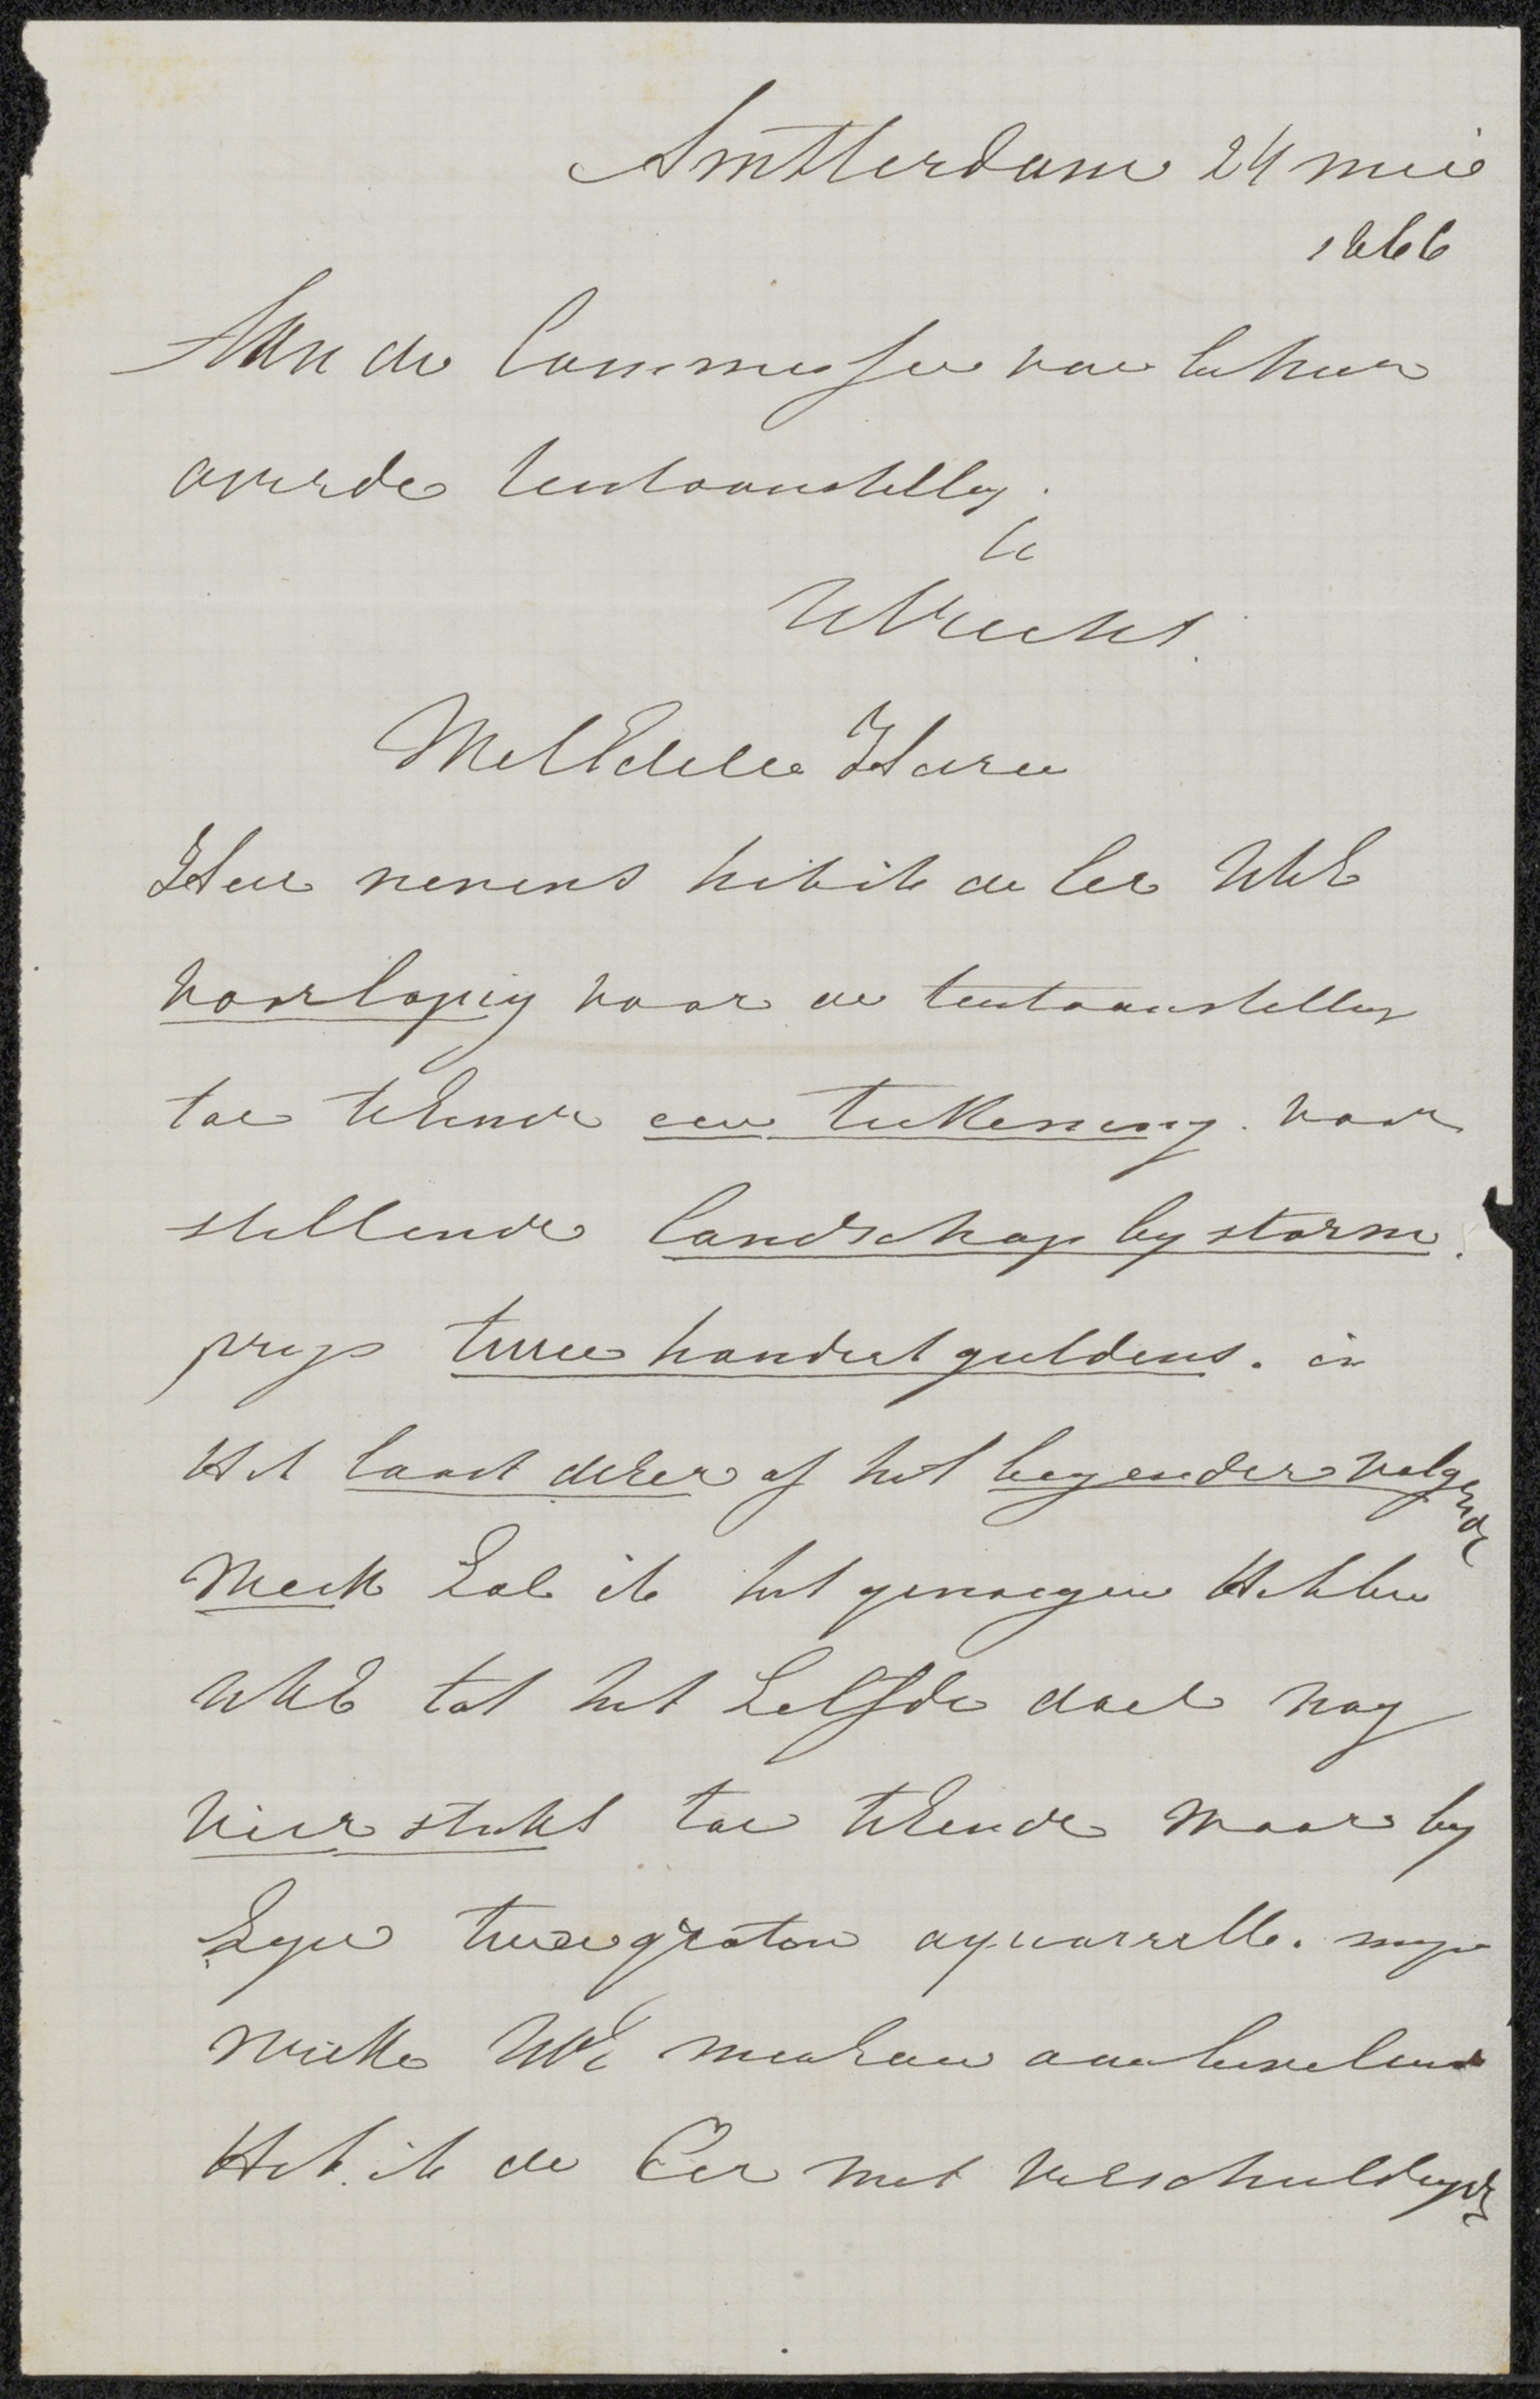 Amsterdam 24 mei
1866
Aan de Commissie van beheer
over de tentoonstelling.
te
Utrecht.
WelEdele Heeren
Hier nevens heb ik de eer UWE
voorlopig voor de tentoonstelling
toe te zende een teekening. voor
stellende landschap by storm.
prys twee hondert guldens. in
Het laast dezer of het begin der volgende
Week zal ik het genoegen Hebben
UWE tot het zelfde doel nog
vier stuks toe te zende Waar by
zyn twee groten aquarelle.
Wielke UWE aanbevelend
Heb ik de Eer met verschuldigde